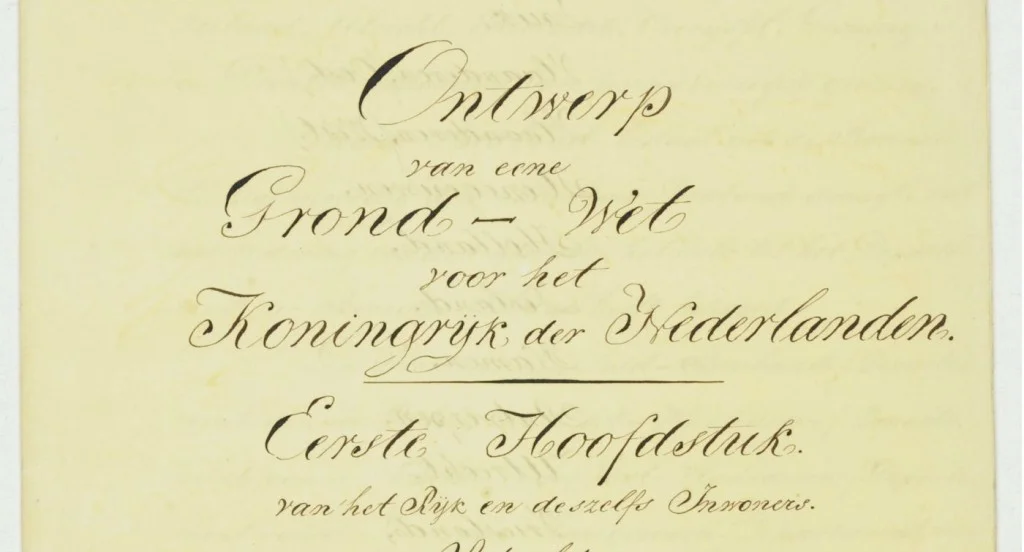 Ontwerp
van eene
Grond - Wet
voor het
Koningrijk der Nederlanden.
Eerste Hoofdstuk.
van het Rijk en deszelfs Inwoners.